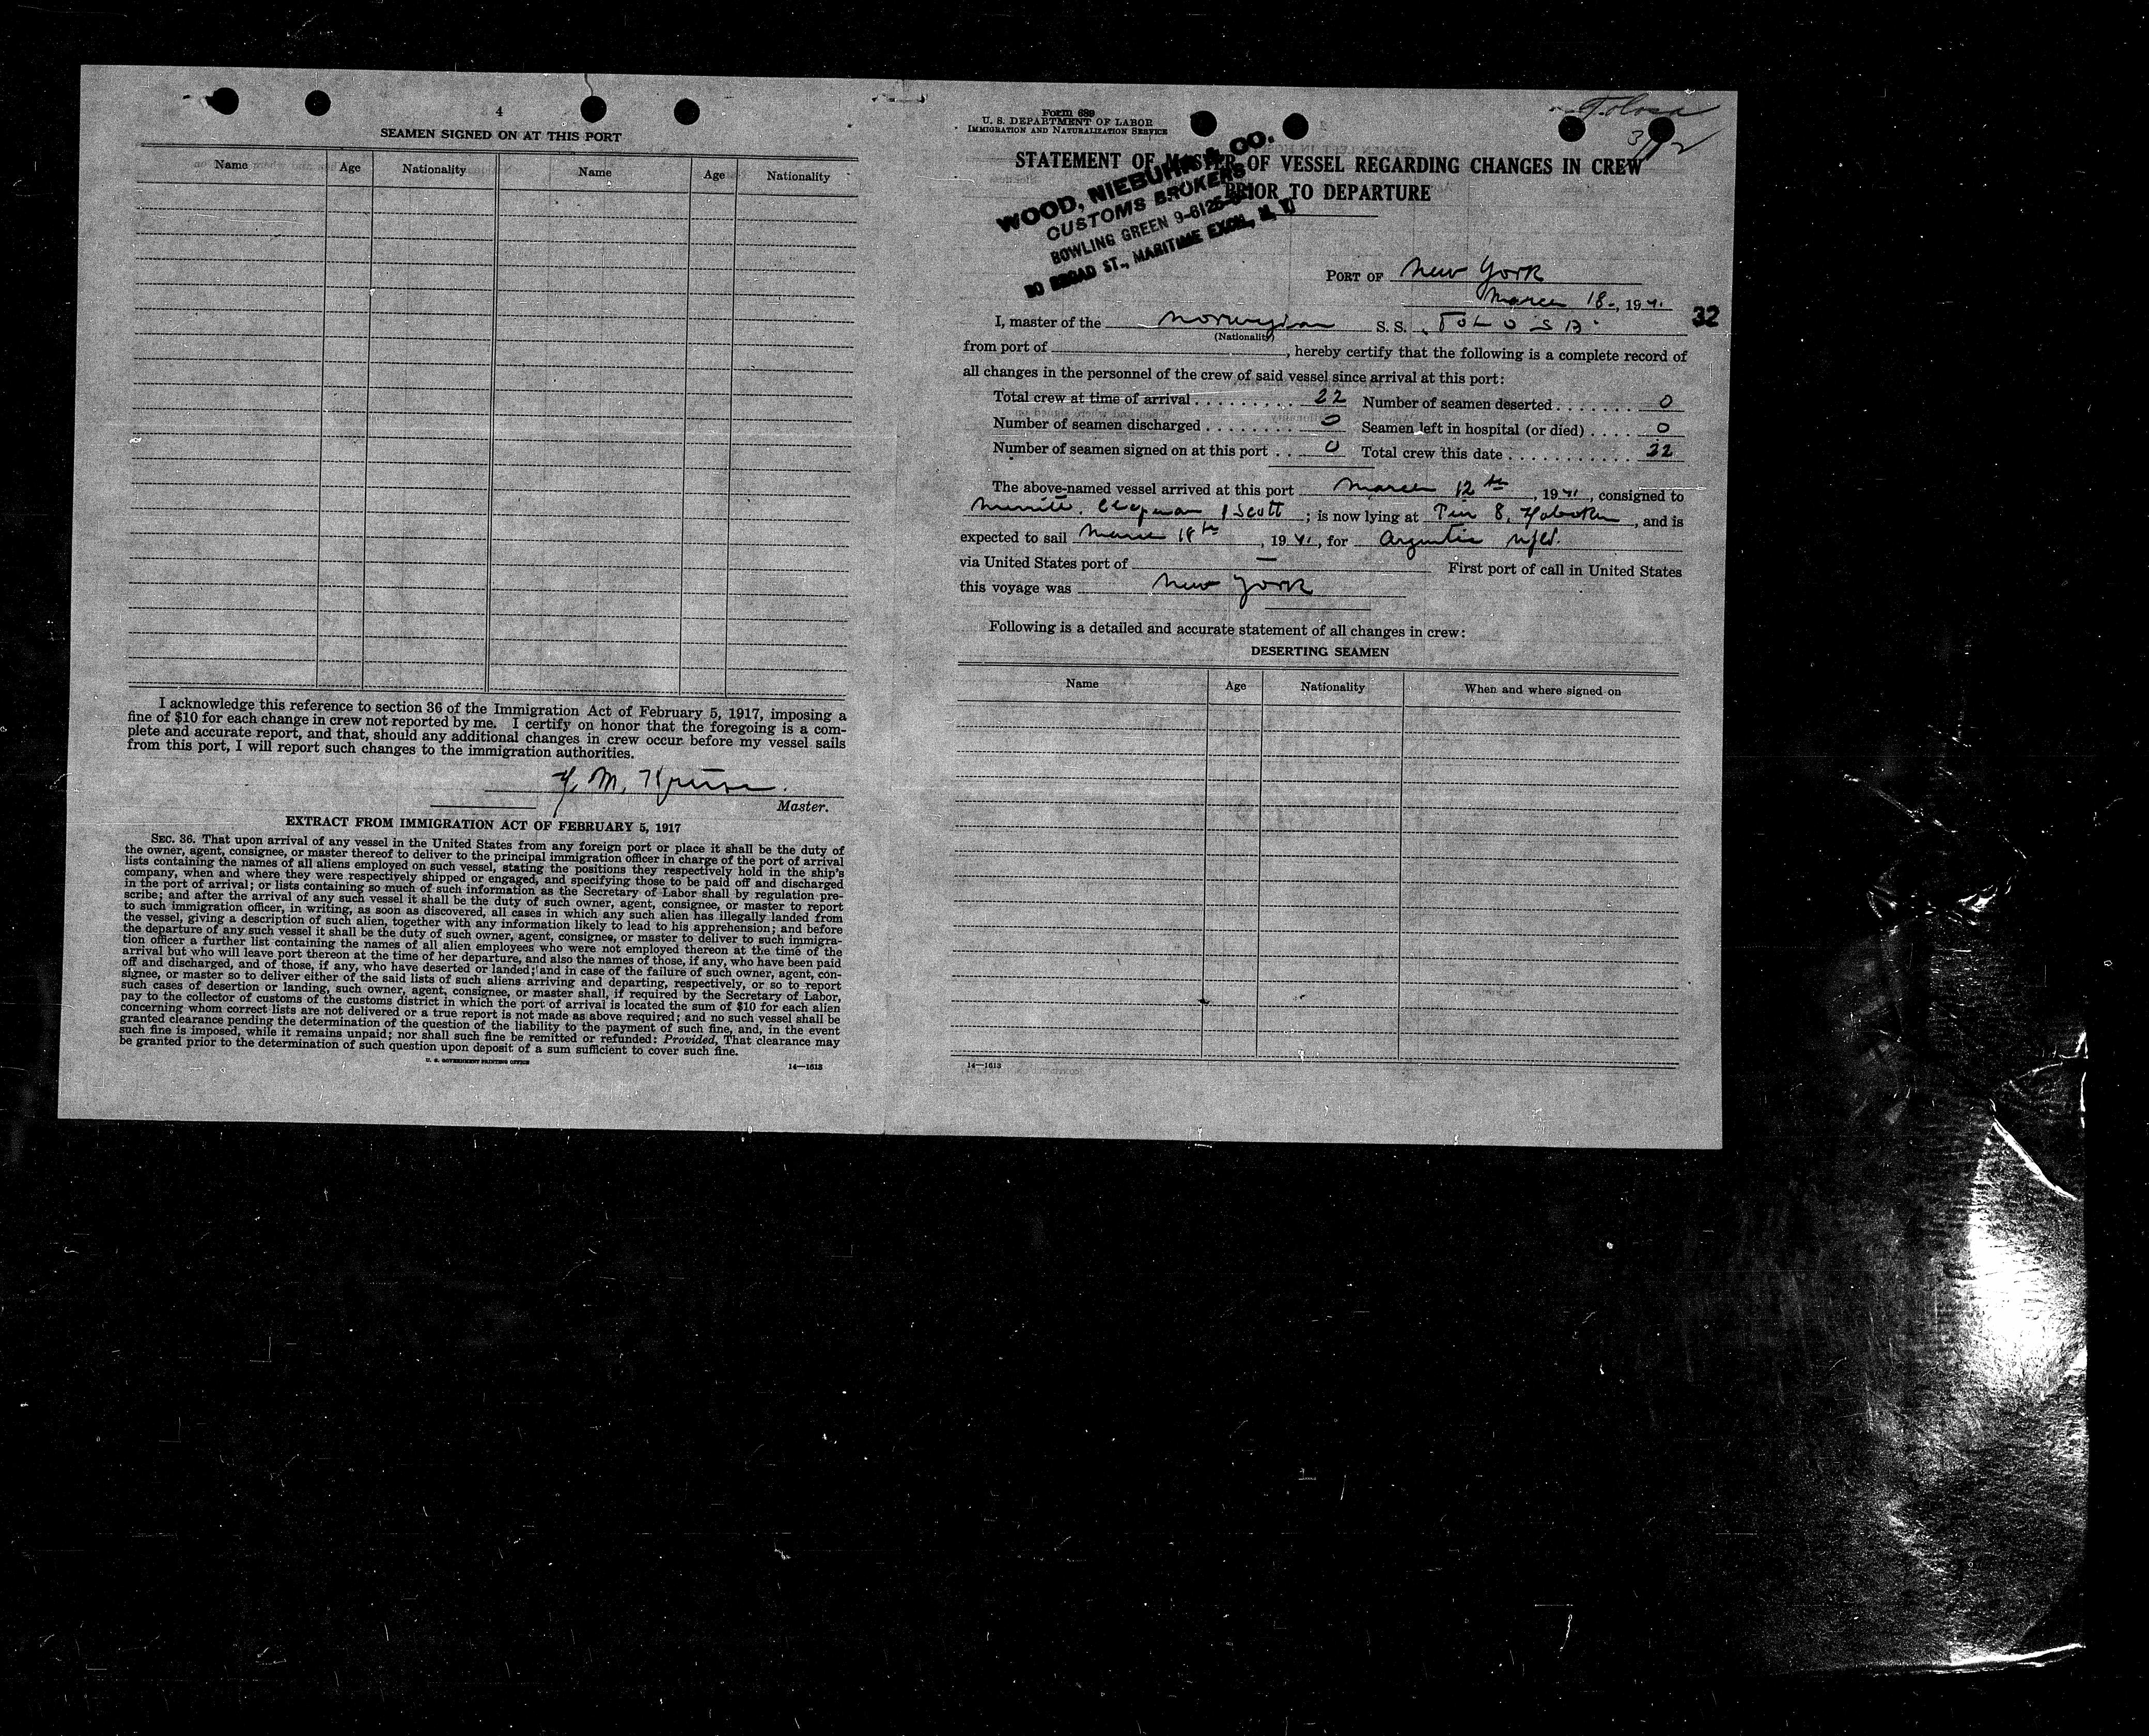 4
SEAMEN SIGNED ON AT THIS PORT
Name Age Nationality Name Age Nationality
I acknowledge this reference to section 36 of the Immigration Act of February 5, 1917, imposing a
fine of $10 for each change in crew not reported by me. I certify on honor that the foregoing is a com-
plete and accurate report, and that, should any additional changes in crew occur before my vessel sails
from this port, I will report such changes to the immigration authorities.
Master.
EXTRACT FROM IMMIGRATION ACT OF FEBRUARY 5, 1917
SEC. 36. That upon arrival of any vessel in the United States from any foreign port or place it shall be the duty of
the owner, agent, consignee, or master thereof to deliver to the principal immigration officer in charge of the port of arrival
lists containing the names of all aliens employed on such vessel, stating the positions they respectively hold in the ship's
company, when and where they were respectively shipped or engaged, and specifying those to be paid off and discharged
in the port of arrival; or lists containing so much of such information as the Secretary of Labor shall by regulation pre-
scribe; and after the arrival of any such vessel it shall be the duty of such owner, agent, consignee, or master to report
to such immigration officer, in writing, as soon as discovered, all cases in which any such alien has illegally landed from
the vessel, giving a description of such alien, together with any information likely to lead to his apprehension; and before
the departure of any such vessel it shall be the duty of such owner, agent, consignee, or master to deliver to such immigra-
tion officer a further list containing the names of all alien employees who were not employed thereon at the time of the
arrival but who will leave port thereon at the time of her departure, and also the names of those, if any, who have been paid
off and discharged, and of those, if any, who have deserted or landed; and in case of the failure of such owner, agent, con-
signee, or master so to deliver either of the said lists of such aliens arriving and departing, respectively, or so to report
such cases of desertion or landing, such owner, agent, consignee, or master shall, if required by the Secretary of Labor,
pay to the collector of customs of the customs district in which the port of arrival is located the sum of $10 for each alien
concerning whom correct lists are not delivered or a true report is not made as above required; and no such vessel shall be
granted clearance pending the determination of the question of the liability to the payment of such fine, and, in the event
such fine is imposed, while it remains unpaid; nor shall such fine be remitted or refunded: Provided, That clearance may
be granted prior to the determination of such question upon deposit of a sum sufficient to cover such fine.
U. S. GOVERNMENT PRINTING OFFICE
14—1613
Tolosa
Form 689
U. S. DEPARTMENT OF LABOR
IMMIGRATION AND NATURALIZATION SERVICE
STATEMENT OF MASTER OF VESSEL REGARDING CHANGES IN CREW
PRIOR TO DEPARTURE
WOOD, NIEBUHR & CO.
CUSTOMS BROKERS
BOWLING GREEN 9-6125
80 BROAD ST., MARITIME EXCH., N. Y.
PORT OF New York
March 18, 1941.
32
I, master of the Norwegian S. S. TOLOSA
(Nationality)
from port of , hereby certify that the following is a complete record of
all changes in the personnel of the crew of said vessel since arrival at this port:
Total crew at time of arrival 22 Number of seamen deserted 0
Number of seamen discharged 0 Seamen left in hospital (or died) 0
Number of seamen signed on at this port 0 Total crew this date 22
The above-named vessel arrived at this port March 12th, 1941, consigned to
Merritt. Chapman & Scott ; is now lying at Pier 8, Hoboken, and is
expected to sail March 18th, 1941, for Argentia Nfld.
via United States port of — First port of call in United States
this voyage was New York
Following is a detailed and accurate statement of all changes in crew:
DESERTING SEAMEN
Name Age Nationality When and where signed on
14—1613